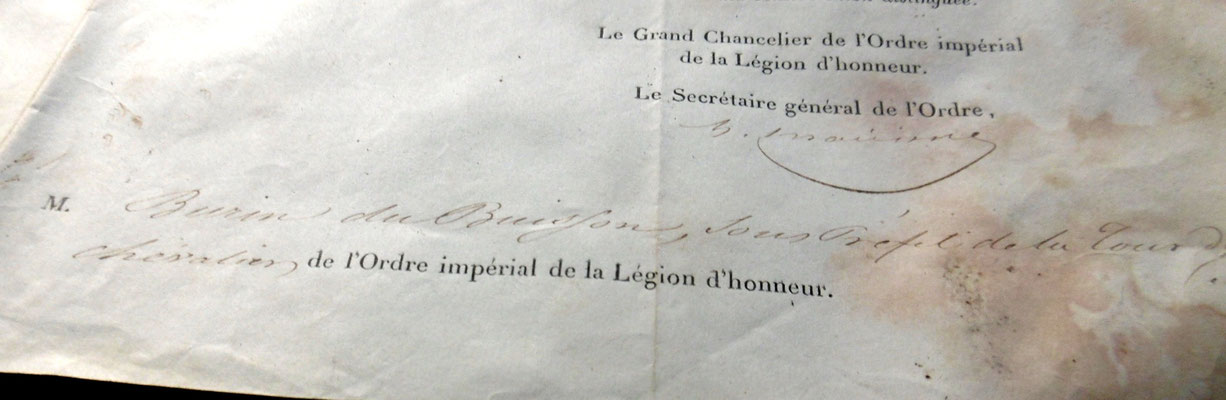 distinguée.
Le Grand Chancelier de l'Ordre impérial
de la Légion d'honneur.
Le Secrétaire général de l'Ordre,
M. Burin du Buisson, Sous Préfet de la Tour d
chevalier, de l'Ordre impérial de la Légion d'honneur.